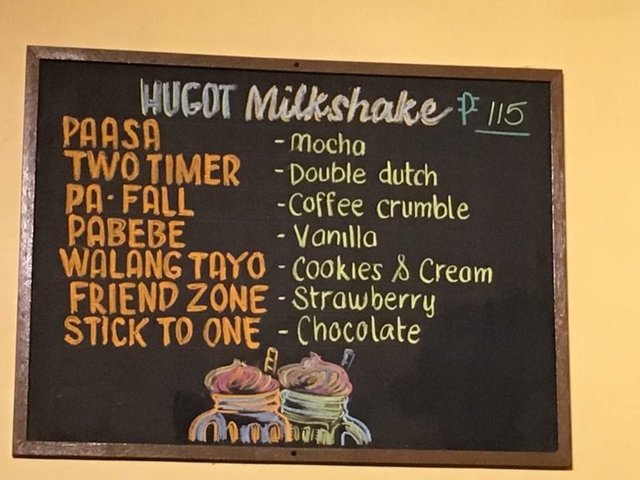 HUGOT Milkshake ₱ 115
PAASA - Mocha
TWO TIMER - Double dutch
PA-FALL - Coffee crumble
PABEBE - Vanilla
WALANG TAYO - Cookies & Cream
FRIEND ZONE - Strawberry
STICK TO ONE - Chocolate